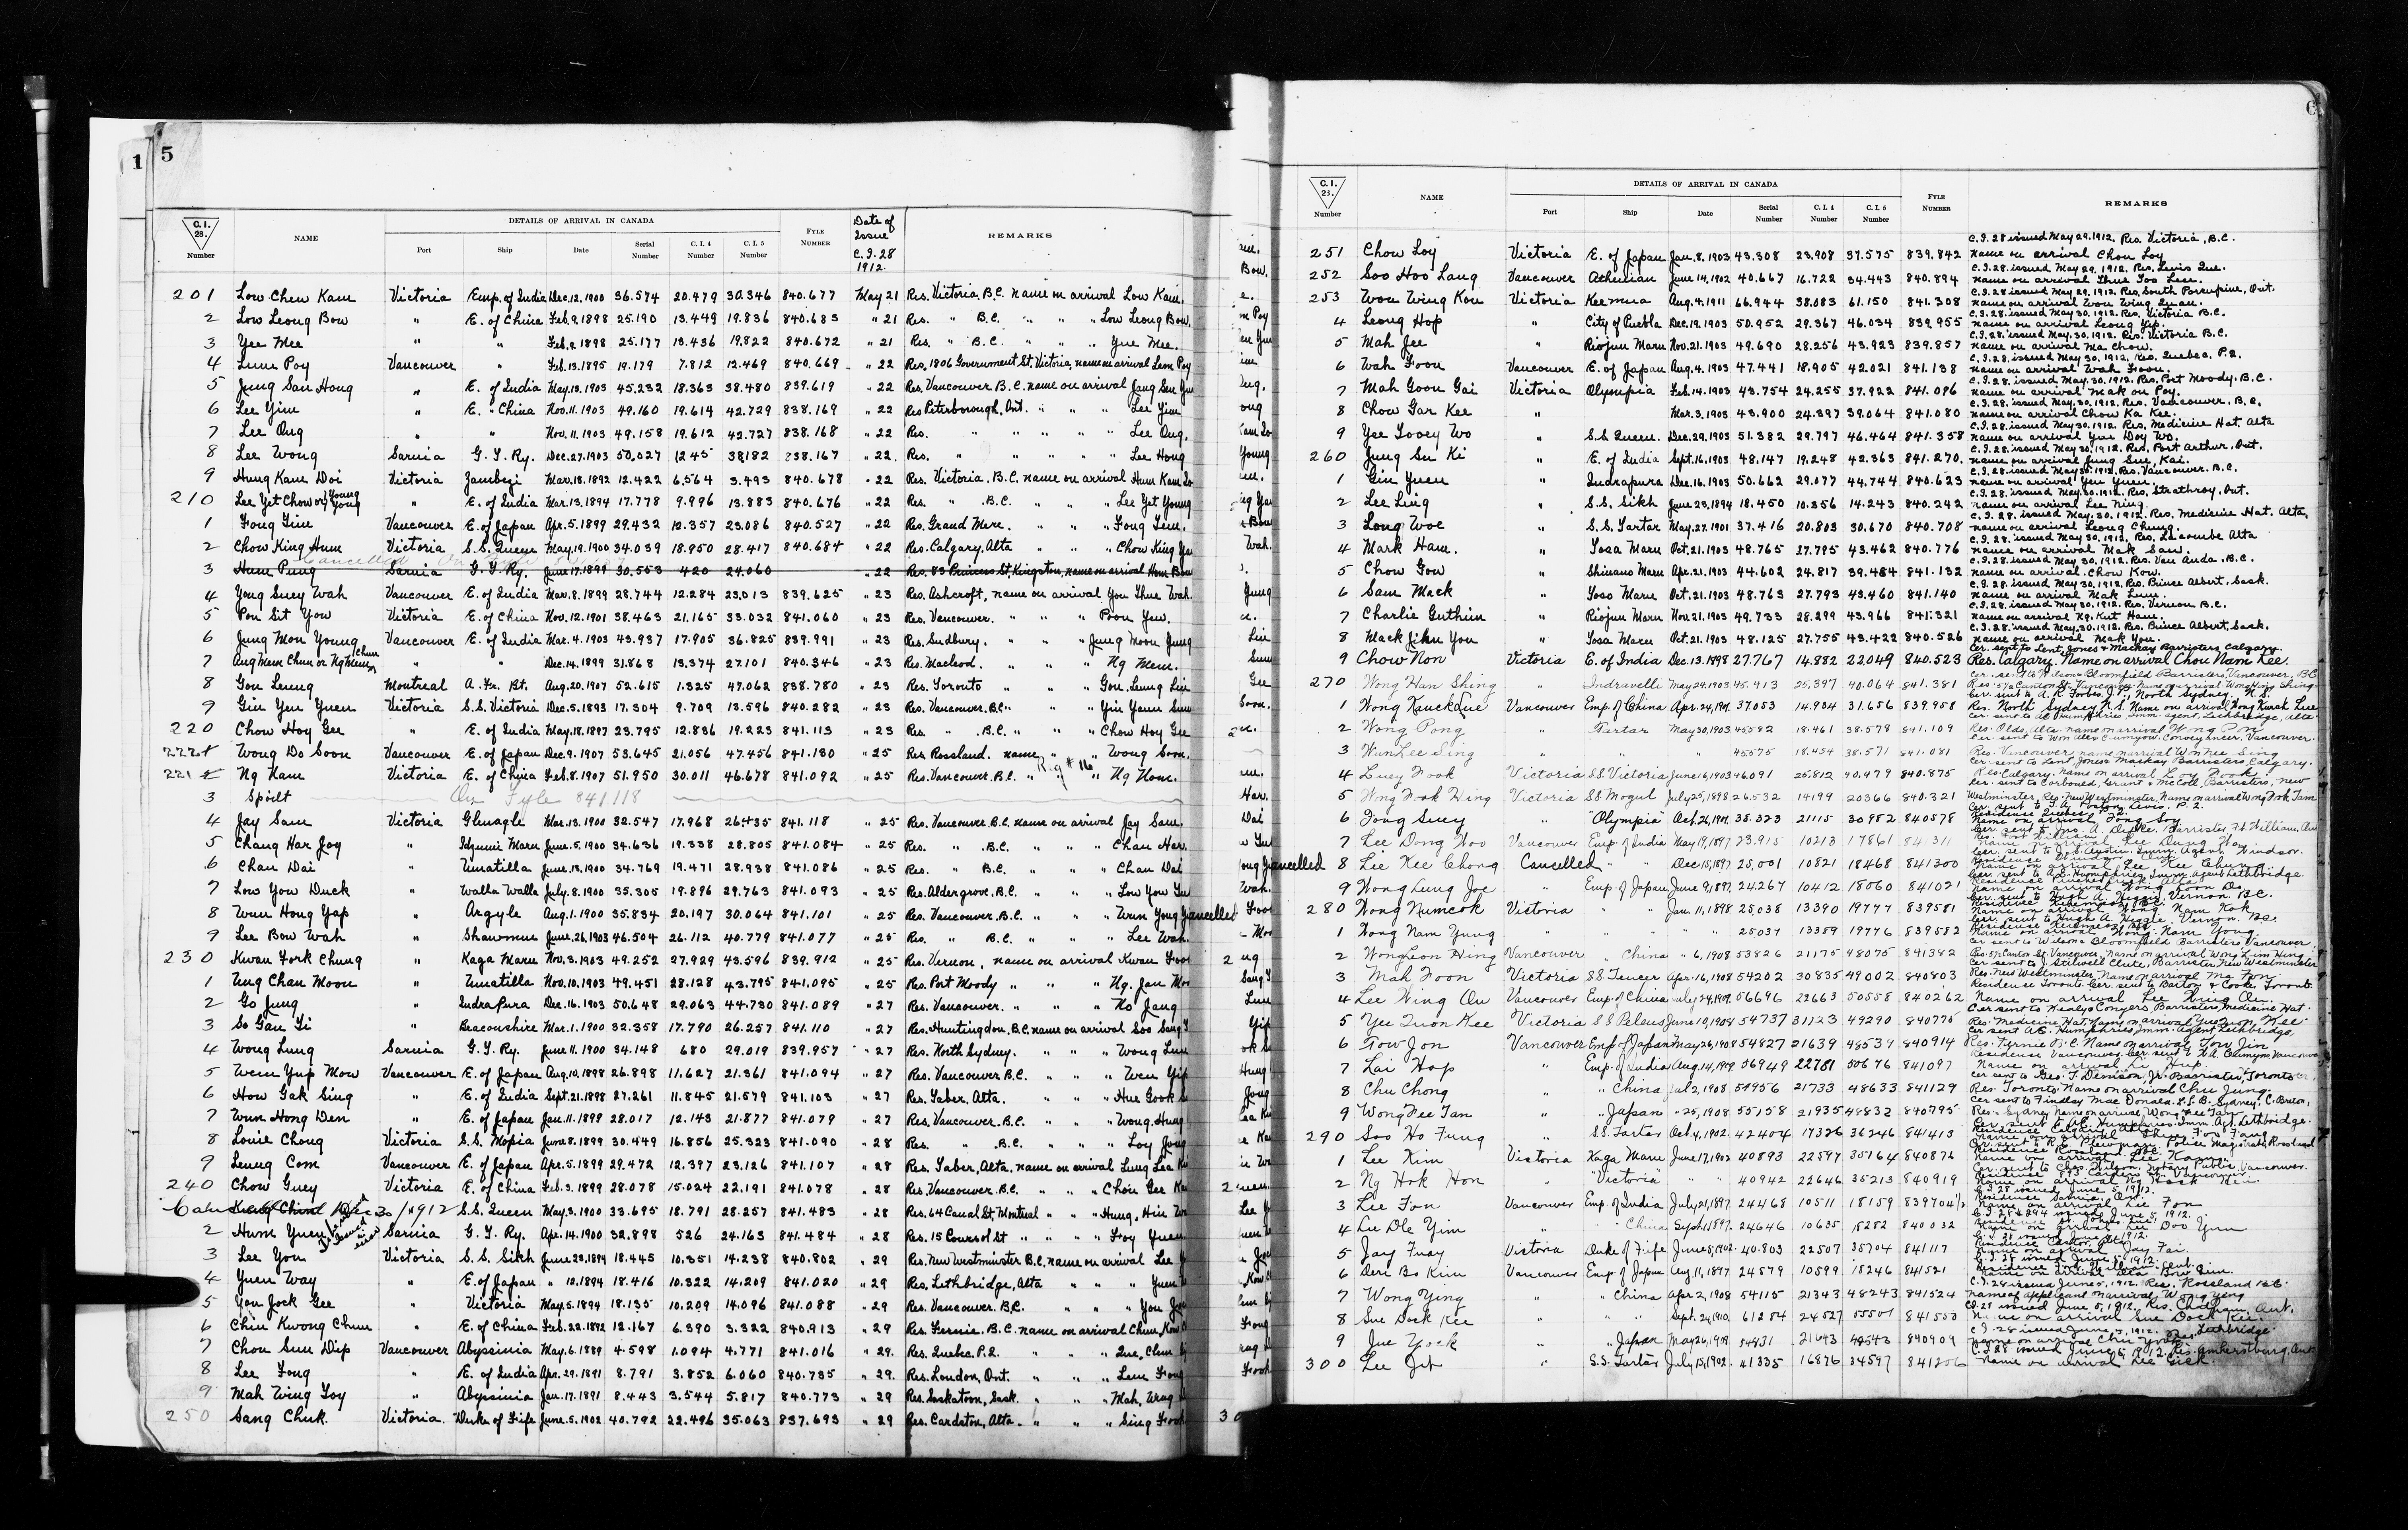 1
5
C.I. 28. Number
NAME
DETAILS OF ARRIVAL IN CANADA
Port Ship Date Serial Number C.I.4 Number C.I.5 Number
FYLE NUMBER
Date of Issue C.I.28 1912.
REMARKS
201 Low Chew Kam Victoria Emp. of India Dec.12.1900 36.574 20.479 30.346 840.677 May 21 Res. Victoria, B.C. name on arrival Low Kam.
2 Low Leong Bow " E. of China Feb.9.1898 25.190 13.449 19.836 840.683 " 21 Res. " B.C. " " " Low Leong Bow.
3 Yee Mee " " Feb.9.1898 25.177 13.436 19.822 840.672 " 21 Res. " B.C. " " " Yue Mee.
4 Lume Poy Vancouver " Feb.13.1895 19.179 7.812 12.469 840.669 " 22 Res. 1806 Government St. Victoria, name on arrival Lem Poy
5 Jung San Hong " E. of India May.13.1903 45.232 18.363 38.480 839.619 " 22 Res. Vancouver B.C. name on arrival Jang Sen
6 Lee Yim " E. " China Nov.11.1903 49.160 19.614 42.729 838.169 " 22 Res Peterborough, Ont. " " " Lee Yim
7 Lee Ong " " Nov.11.1903 49.158 19.612 42.727 838.168 " 22 Res. " " " " Lee Ong.
8 Lee Wong Sarnia G.T. Ry. Dec.27.1903 50,027 1245 38182 838.167 " 22. Res. " " " " Lee Hong
9 Hung Kam Doi Victoria Zambezi Mar.18.1892 12.422 6.564 3.493 840.678 " 22 Res. Victoria. B.C. name on arrival Hum Kam
210 Lee Yet Chow or Young Yong " E. of India Mar.13.1894 17.778 9.996 13.883 840.676 " 22 Res. " B.C. " " " Lee Yet Young
1 Fong Tim Vancouver E. of Japan Apr.5.1899 29.432 12.357 23.086 840.527 " 22 Res. Grand Mere. " " " Fong Tim.
2 Chow King Hum Victoria S.S. Queen May.19.1900 34.039 18.950 28.417 840.684 " 22 Res. Calgary, Alta " " " Chow King
Cancelled
3 Hum Pung Sarnia G.T. Ry. June 17.1899 30.553 420 24.060 " 22 Res. 83 Princess St, Kingston, name on arrival Hom Bow
4 Yong Suey Wah Vancouver E. of India Mar.8.1899 28.744 12.284 23.013 839.625 " 23 Res. Ashcroft, name on arrival You Thue Wah.
5 Pon Sit Yow Victoria E. of China Nov.12.1901 38.463 21.165 33.032 841.060 " 23 Res. Vancouver. " " " Poon Yew.
6 Jung Mon Young Vancouver E. of India Mar.4.1903 43.937 17.905 36.825 839.991 " 23 Res. Sudbury. " " " Jung Moon Jung
7 Aug Mem Chun or Ng Mem Chun " " Dec.14.1899 31.868 13.374 27.101 840.346 " 23 Res. Macleod. " " " Ng Mem.
8 Gon Leung Montreal A. Fr. Bt. Aug.20.1907 52.615 1.325 47.062 838.780 " 23 Res. Toronto " " " Gon. Leung Lin
9 Gin Yen Yuen Victoria S.S. Victoria Dec.5.1893 17.304 9.709 13.596 840.282 " 23 Res. Vancouver. B.C. " " " Yin Yenn Sun
220 Chow Hoy Gee " E. of India May.18.1897 23.795 12.836 19.223 841.113 " 23 Res. " .B.C. " " " Chow Hoy Gee
222 Wong Do Soon Vancouver E. of Japan Dec.9.1907 53.645 21.056 47.456 841.180 " 25 Res Rossland. name " " Wong Soon.
221 Ng Nam Victoria E. of China Feb.8.1907 51.950 30.011 46.678 841.092 " 25 Res. Vancouver. B.C. " Reg # 16 " Ng Nom.
3 Spoilt On Fyle 841118
4 Jay Sam Victoria Glenogle Mar.13.1900 32.547 17.968 26.435 841.118 " 25 Res. Vancouver. B.C. name on arrival Jay Sam.
5 Chang Har Joy " Idzumi Maru June.5.1900 34.636 19.338 28.805 841.084 " 25 Res. " .B.C. " " " Chan Har.
6 Chan Dai " Umatilla June.13.1900 34.769 19.471 28.938 841.086 " 25 Res. " B.C. " " " Chan Dai
7 Low You Duck " Walla Walla July.8.1900 35.305 19.896 29.763 841.093 " 25 Res. Aldergrove. B.C. " " " Low You
8 Wun Hong Yap " Argyle Aug.1.1900 35.834 20.197 30.064 841.101 " 25 Res. Vancouver. B.C. " " " Wun Yong
9 Lee Bow Wah " Shawmut June.26.1903 46.504 26.112 40.779 841.077 " 25 Res. " B.C. " " " Lee Wah.
230 Kwan Fork Chung " Kaga Maru Nov.3.1903 49.252 27.929 43.596 839.912 " 25 Res. Vernon, name on arrival Kwan Foo
1 Ung Chan Moon " Umatilla Nov.10.1903 49.451 28.128 43.795 841.095 " 25 Res. Port Moody " " " Ng. Jan Moo
2 Go Jung " Indra Pura Dec.16.1903 50.648 29.063 44.730 841.089 " 27 Res. Vancouver. " " " Ko Jang
3 So Gan Ti " Braconshire Mar.1.1900 32.358 17.790 26.257 841.110 " 27 Res. Huntingdon, B.C. name on arrival Soo Sang
4 Wong Lung Sarnia G.T. Ry. June 11.1900 34.148 680 29.019 839.957 " 27 Res. North Sydney. " " " Wong Lun
5 Wem Yup Mow Vancouver E. of Japan Aug.10.1898 26.898 11.627 21.361 841.094 " 27 Res. Vancouver B.C. " " " Wen Yip
6 How Gak Sing " E. of India Sept.21.1898 27.261 11.845 21.579 841.103 " 27 Res. Taber, Alta. " " " Hue Gook
7 Wun Hong Den " E. of Japan Jan.11.1899 28.017 12.143 21.877 841.079 " 27 Res. Vancouver. B.C. " " " Wong. Hung
8 Louie Chong Victoria S.S. Mopia June.8.1899 30.449 16.856 25.323 841.090 " 28 Res. " .B.C. " " " Loy Jong
9 Leung Com Vancouver E. of Japan Apr.5.1899 29.472 12.397 23.126 841.107 " 28 Res. Taber, Alta, name on arrival Lung Lea
240 Chow Guey Victoria E. of China Feb.3.1899 28.078 15.024 22.191 841.078 " 28 Res. Vancouver. B.C. " " " Chou Gee
Cancelled Dec 30/1912 S.S. Queen May.3.1900 33.695 18.791 28.257 841.483 " 28 Res. 64 Canal St, Montreal " " " Hung, Hin
2 Hum Yuen Sarnia G.T. Ry. Apr.14.1900 32.898 526 24.163 841.484 " 28 Res. 15 Coursol St " " " Froy Yuen
3 Lee Yon Victoria S.S. Sikh June 23.1894 18.445 10.351 14.238 840.802 " 29 Res. New Westminster B.C, name on arrival Lee
4 Yuen Way " E. of Japan " 12.1894 18.416 10.322 14.209 841.020 " 29 Res. Lethbridge, Alta " " " Yuen
5 You Jock Gee " Victoria May.5.1894 18.135 10.209 14.096 841.088 " 29 Res. Vancouver. B.C. " " " You
6 Chin Kwong Chun " E. of China Feb.22.1892 12.167 6.390 3.322 840.913 " 29 Res. Fernie. B.C. name on arrival Chun Kow
7 Chou Sun Dip Vancouver Abyssinia May.6.1889 4.598 1.094 4.771 841.016 " 29. Res. Quebec, P.Q. " " " Que, Chun
8 Lee Fong " E. of India Apr.29.1891 8.791 3.852 6.060 840.735 " 29. Res. London, Ont. " " " Lem Fong
9 Mah Wing Toy " Abyssinia Jan.17.1891 8.443 3.544 5.817 840.773 " 29 Res. Saskatoon, Sask. " " " Mah, Wrug
250 Sang Chuk. Victoria. Duke of Fife June.5.1902 40.792 22.496 35.063 837.693 " 29 Res. Cardston, Alta. " " " Sing Fook
C.I. 28. Number
NAME
DETAILS OF ARRIVAL IN CANADA
Port Ship Date Serial Number C.I.4 Number C.I.5 Number
FYLE NUMBER
REMARKS
C.I. 28 issued May 29.1912, Res. Victoria, B.C.
251 Chow Loy Victoria E. of Japan Jan.8.1903 43.308 23.908 37.575 839.842 name on arrival Chou Loy
C.I. 28 issued May 29.1912. Res. Levis Que.
252 Soo Hoo Lang Vancouver Athenian June 14.1902 40.667 16.722 34.443 840.894 name on arrival Thue Foo Leen.
C.I. 28 issued May 29.1912. Res. South Porcupine, Ont.
253 Won Wing Kon Victoria Keemun Aug.4.1911 66.944 38.083 61.150 841.308 name on arrival Won Wing
C.I. 28. issued May 30.1912. Res. Victoria B.C.
4 Leong Hop " City of Puebla Dec.19.1903 50.952 29.367 46.034 839.955 name on arrival Leong Yip.
C.I. 28. issued May 30.1912. Res. Victoria B.C.
5 Mah Jee " Riojun Maru Nov.21.1903 49.690 28.256 43.923 839.857 name on arrival Ma Chow.
C.I. 28. issued May 30.1912. Res. Quebec, P.Q.
6 Wah Foon Vancouver E. of Japan Aug.4.1903 47.441 18.905 42.021 841.138 name on arrival Wah Foon.
C.I. 28. issued May.30.1912. Res. Port Moody. B.C.
7 Mah Goon Gai Victoria Olympia Feb.14.1903 43.754 24.255 37.922 841.096 name on arrival Mak on Poy.
C.I. 28. issued May.30.1912. Res. Vancouver. B.C.
8 Chow Gar Kee " Mar.3.1903 43.900 24.397 39.064 841.080 name on arrival Chow Ka Kee.
C.I. 28. issued May 30.1912. Res. Medicine Hat. Alta
9 Yee Tooey Wo " S.S. Queen. Dec.29.1903 51.382 29.797 46.464 841.358 name on arrival Yue Doy Wo.
C.I. 28. issued May 30.1912. Res. Port Arthur. Ont.
260 Jung Su Ki " E. of India Sept.16.1903 48.147 19.248 42.363 841.270. name on arrival Jung Sue Kai.
C.I. 28 issued May 30.1912. Res. Vancouver. B.C.
1 Gin Yuen " Indrapura Dec.16.1903 50.662 29.077 44.744 840.623 name on arrival Yen Yuen.
C.I. 28. issued May.30.1912. Res. Strathroy, Ont.
2 Lee Ling " S.S. Sikh June 23.1894 18.450 10.356 14.243 840.242 name on arrival Lee Ning.
C.I. 28. issued May.30.1912. Res. Medicine Hat. Alta.
3 Long Woe " S.S. Tartar May.27.1901 37.416 20.803 30.670 840.708 name on arrival Leong Chung.
C.I. 28. issued May 30.1912. Res. Lacombe Alta
4 Mark Ham. " Tosa Maru Oct.21.1903 48.765 27.795 43.462 840.776 name on arrival Mak Saw.
C.I. 28. issued May 30.1912. Res. Van Anda, B.C.
5 Chow Gow " Shinano Maru Apr.21.1903 44.602 24.817 39.484 841.132 name on arrival. Chow Kow.
C.I. 28. issued May 30.1912. Res. Prince Albert, Sask.
6 Sam Mack " Toso Maru Oct.21.1903 48.763 27.793 43.460 841.140 name on arrival Mak Lum.
C.I. 28. issued May 30.1912. Res. Vernon B.C.
7 Charlie Guthim " Riojun Maru Nov.21.1903 49.733 28.299 43.966 841.321 name on arrival Ng. Kut Ham.
C.I. 28. issued May.30.1912. Res. Prince Albert, Sask.
8 Mack Jiku You " Tosa Maru Oct.21.1903 48.125 27.755 43.422 840.526 name on arrival Mak You.
Cer. sent to Lent Jones & Mackay Barristers Calgary.
9 Chow Non Victoria E. of India Dec.13.1898 27.767 14.882 22.049 840.523 Res. Calgary. Name on arrival Chou Nam Lee.
Cer. sent to Wilson & Bloomfield Barristers, Vancouver, B.C.
270 Wong Han Shing " Indravelli May 24.1903 45.413 25.397 40.064 841.381 name on arrival Wong Hing Shing
Cer. sent to A.R. Forbes, J.P., North Sydney. N.S.
1 Wong Kuck Que Vancouver Emp. of China Apr.24,1901 37053 14.934 31.656 839.958 Res. North Sydney N.S. Name on arrival Wong Kwok Lue
Cer. sent to AE Humphries, Imm. agent, Lethbridge, Alta.
2 Wong Pong " Tartar May 30,1903 45582 18.461 38.578 841.109 Res. Olds, Alta. name on arrival Wong Pon
Cer. sent to Wm Alex Cumyow. Conveyancer. Vancouver.
3 Wun Lee Sing " " " 45575 18.454 38.571 841.081 Res. Vancouver name on arrival Won Nee Sing
Cer. sent to Lent Jones & Mackay Barristers, Calgary.
4 Luey Nook Victoria S.S. Victoria June 16,1903 46,091 25.812 40.479 840.875 Res. Calgary. Name on arrival Loy Nook.
Cer. sent to Corbould, Grant & McColl, Barristers, New
5 Wong Nook Hing Victoria S.S. Mogul July 25,1898 26.532 14199 20366 840.321 Westminster. Res. New Westminster, Name on arrival Wong Fook Tam
6 Dong Suey " Olympia Oct.26,1901. 38.323 21115 30982 840578 Name on arrival Tong Soy
7 Lee Dong Woo Vancouver Emp. of India May 19,1897 23.915 10213 17861 84311 Name on arrival Lee Dung Wo
8 Lee Kee Chong Cancelled " Dec 15,1897 25,001 10821 18468 841300 name on arrival Lee Kee Chung
Cer. sent to A.E. Humphries, Imm. agent Lethbridge.
9 Wong Lung Joe " Emp. of Japan June 9,1897. 24.267 10412 18060 841021 name on arrival Wong Loon
280 Wong Numcok Victoria " " Jan.11,1898 25,038 13390 19777 839581 Name on arrival Wong Nam Kok
Cer. sent to Hugh A. Heggie, Vernon. B.C.
1 Wong Nam Yung " " " " 25037 13389 19776 839582 Name on arrival Wong Nam Yong.
Cer. sent to Wilson & Bloomfield Barristers, Vancouver.
2 Wong Lion Hing Vancouver " China " 6,1908 53826 21175 48075 841382 Name on arrival Wong Lim Hing
Cer. sent to J. Stilwell Clute, Barrister, New Westminster
3 Mah Foon Victoria S.S. Teucer Apr.16,1908 54202 30835 49002 840803 Res. New Westminster, Name on arrival Ma Fon.
Residence Toronto. Cer. sent to Barton & Cooke Toronto.
4 Lee Wing On Vancouver Emp. of China July 24,1909. 56696 22663 50558 840262 Name on arrival Lee Wing On.
Cer. sent to Nealy & Conyers, Barristers, Medicine Hat.
5 Yee Tuon Kee Victoria S S Peleus June 10,1908 54737 31123 49290 840775 Res. Medicine Hat. Name on arrival Yue Tuon Kee
Cer. sent A.E. Humphries, Imm. Agent Lethbridge.
6 Tow Jon Vancouver Emp. of Japan May 26,1908 54827 21639 48539 840914 Res. Fernie B.C. Name on arrival Tow Jin
7 Lai Hop " Emp. of India Aug.14,1909 56949 22781 50676 841097 Name on arrival Li Hup.
Cer. sent to Geo. T. Denison, Jr. Barrister, Toronto
8 Chu Chong " " China Jul 2,1908 54956 21733 48633 841129 Res. Toronto. Name on arrival Chu Jung.
Cer. sent to Findlay Mac Donald. L.L.B. Sydney. C. Breton,
9 Wong Fee Tan " " Japan " 25,1908 55158 21935 48832 840795 Res. Sydney Name on arrival Wong Lee Tan
290 Soo Ho Fung " S.S. Tartar Oct.4,1902. 42404 17326 36246 841413
1 Lee Kim Victoria Kaga Maru June 17,1902 40893 22597 35164 840876 Name on arrival Lee Kam.
Cer. sent to Chas. Wilson, Notary Public, Vancouver.
2 Ng Hok Hon " "Victoria" " 40942 22646 35213 840919 Name on arrival Ng Hock
C.I. 28 issued June 5, 1912.
3 Lee Fon Vancouver Emp. of India July 21,1897 24468 10511 18159 839704½ Name on arrival Lee Fon
4 Lee Dle Yim " " China Sept.1,1897. 24646 10635 18282 840032 Name on arrival Lee Doo Yim
5 Jay Fuay Victoria Duke of Fife June 5,1902. 40.803 22507 35704 841117 Name on arrival Jay Fai.
6 Der Bo Kim Vancouver Emp. of Japan Aug.11,1897 24579 10599 18246 841521 Name on arrival Da Bow Gim.
C.I. 28 issued June 5, 1912. Res. Rossland B.C.
7 Wong Ying " " China Apr 2,1908 54115 21343 48243 841524 Name of applicant on arrival Wong Ying
C.I. 28 issued June 5, 1912. Res. Chatham, Ont.
8 Sue Dock Kee " " " Sept.24,1910. 61284 24527 55501 841550 Name on arrival Sue Dock Kee.
C.I. 28 issued June 5, 1912. Res. Lethbridge.
9 Jue Yock " " Japan May 26,1908 54831 21643 48543 840909 Name on arrival Chu
C.I. 28 issued June 5, 1912. Res. Amherstburg, Ont.
300 Lee Jit " S.S. Tartar July 15,1902. 41335 16876 34597 841206 Name on arrival Lee Gick.